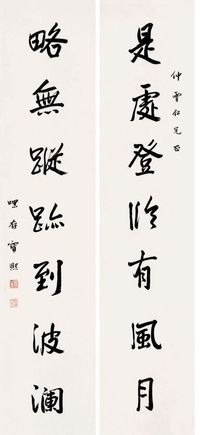 是處登臨有風月
仲雲仁兄正
略無蹤跡到波瀾
寶熙